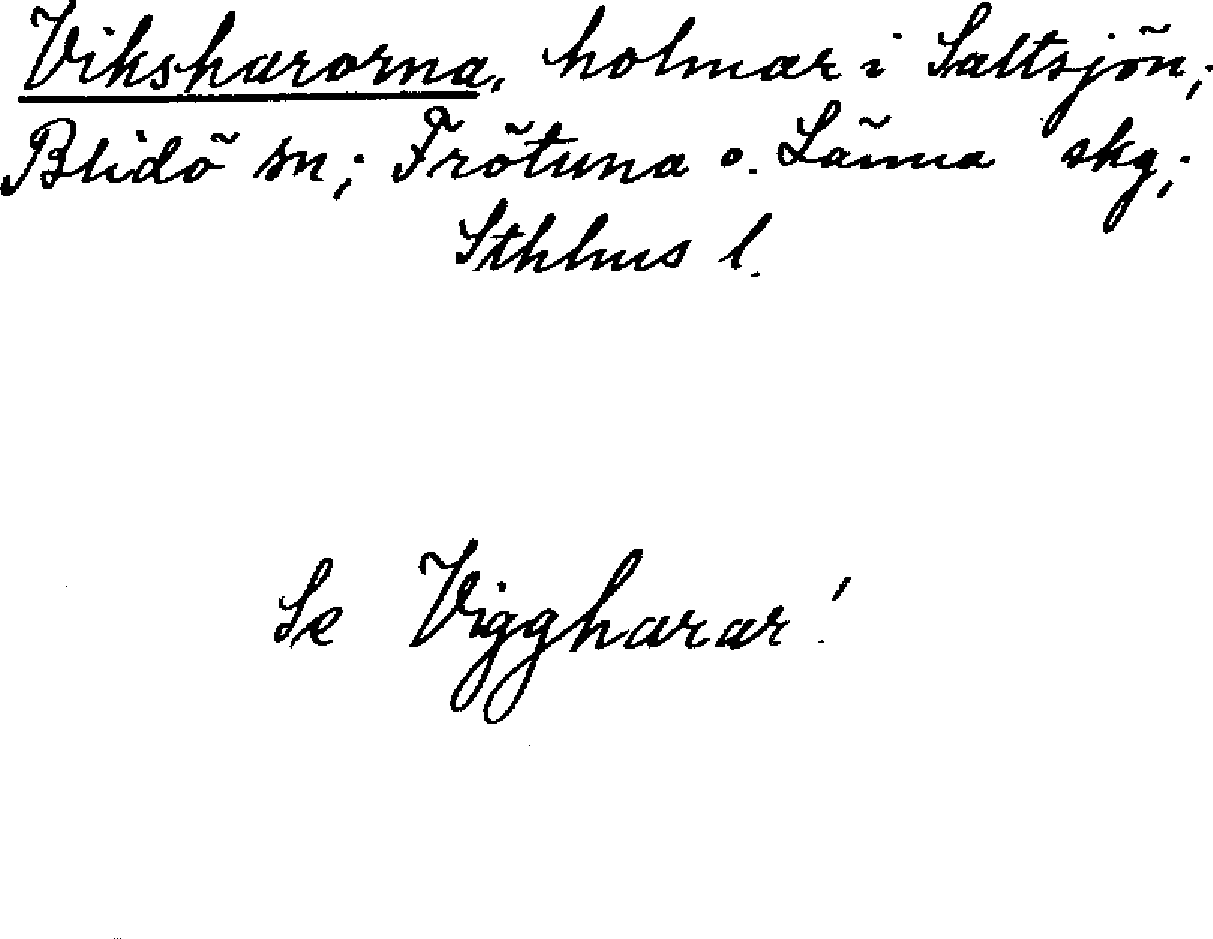 Viksharorna, holmar i Saltsjön;
Blidö sn; Frötuna o. Länna skg;
Sthlms l.
Se Viggharar!